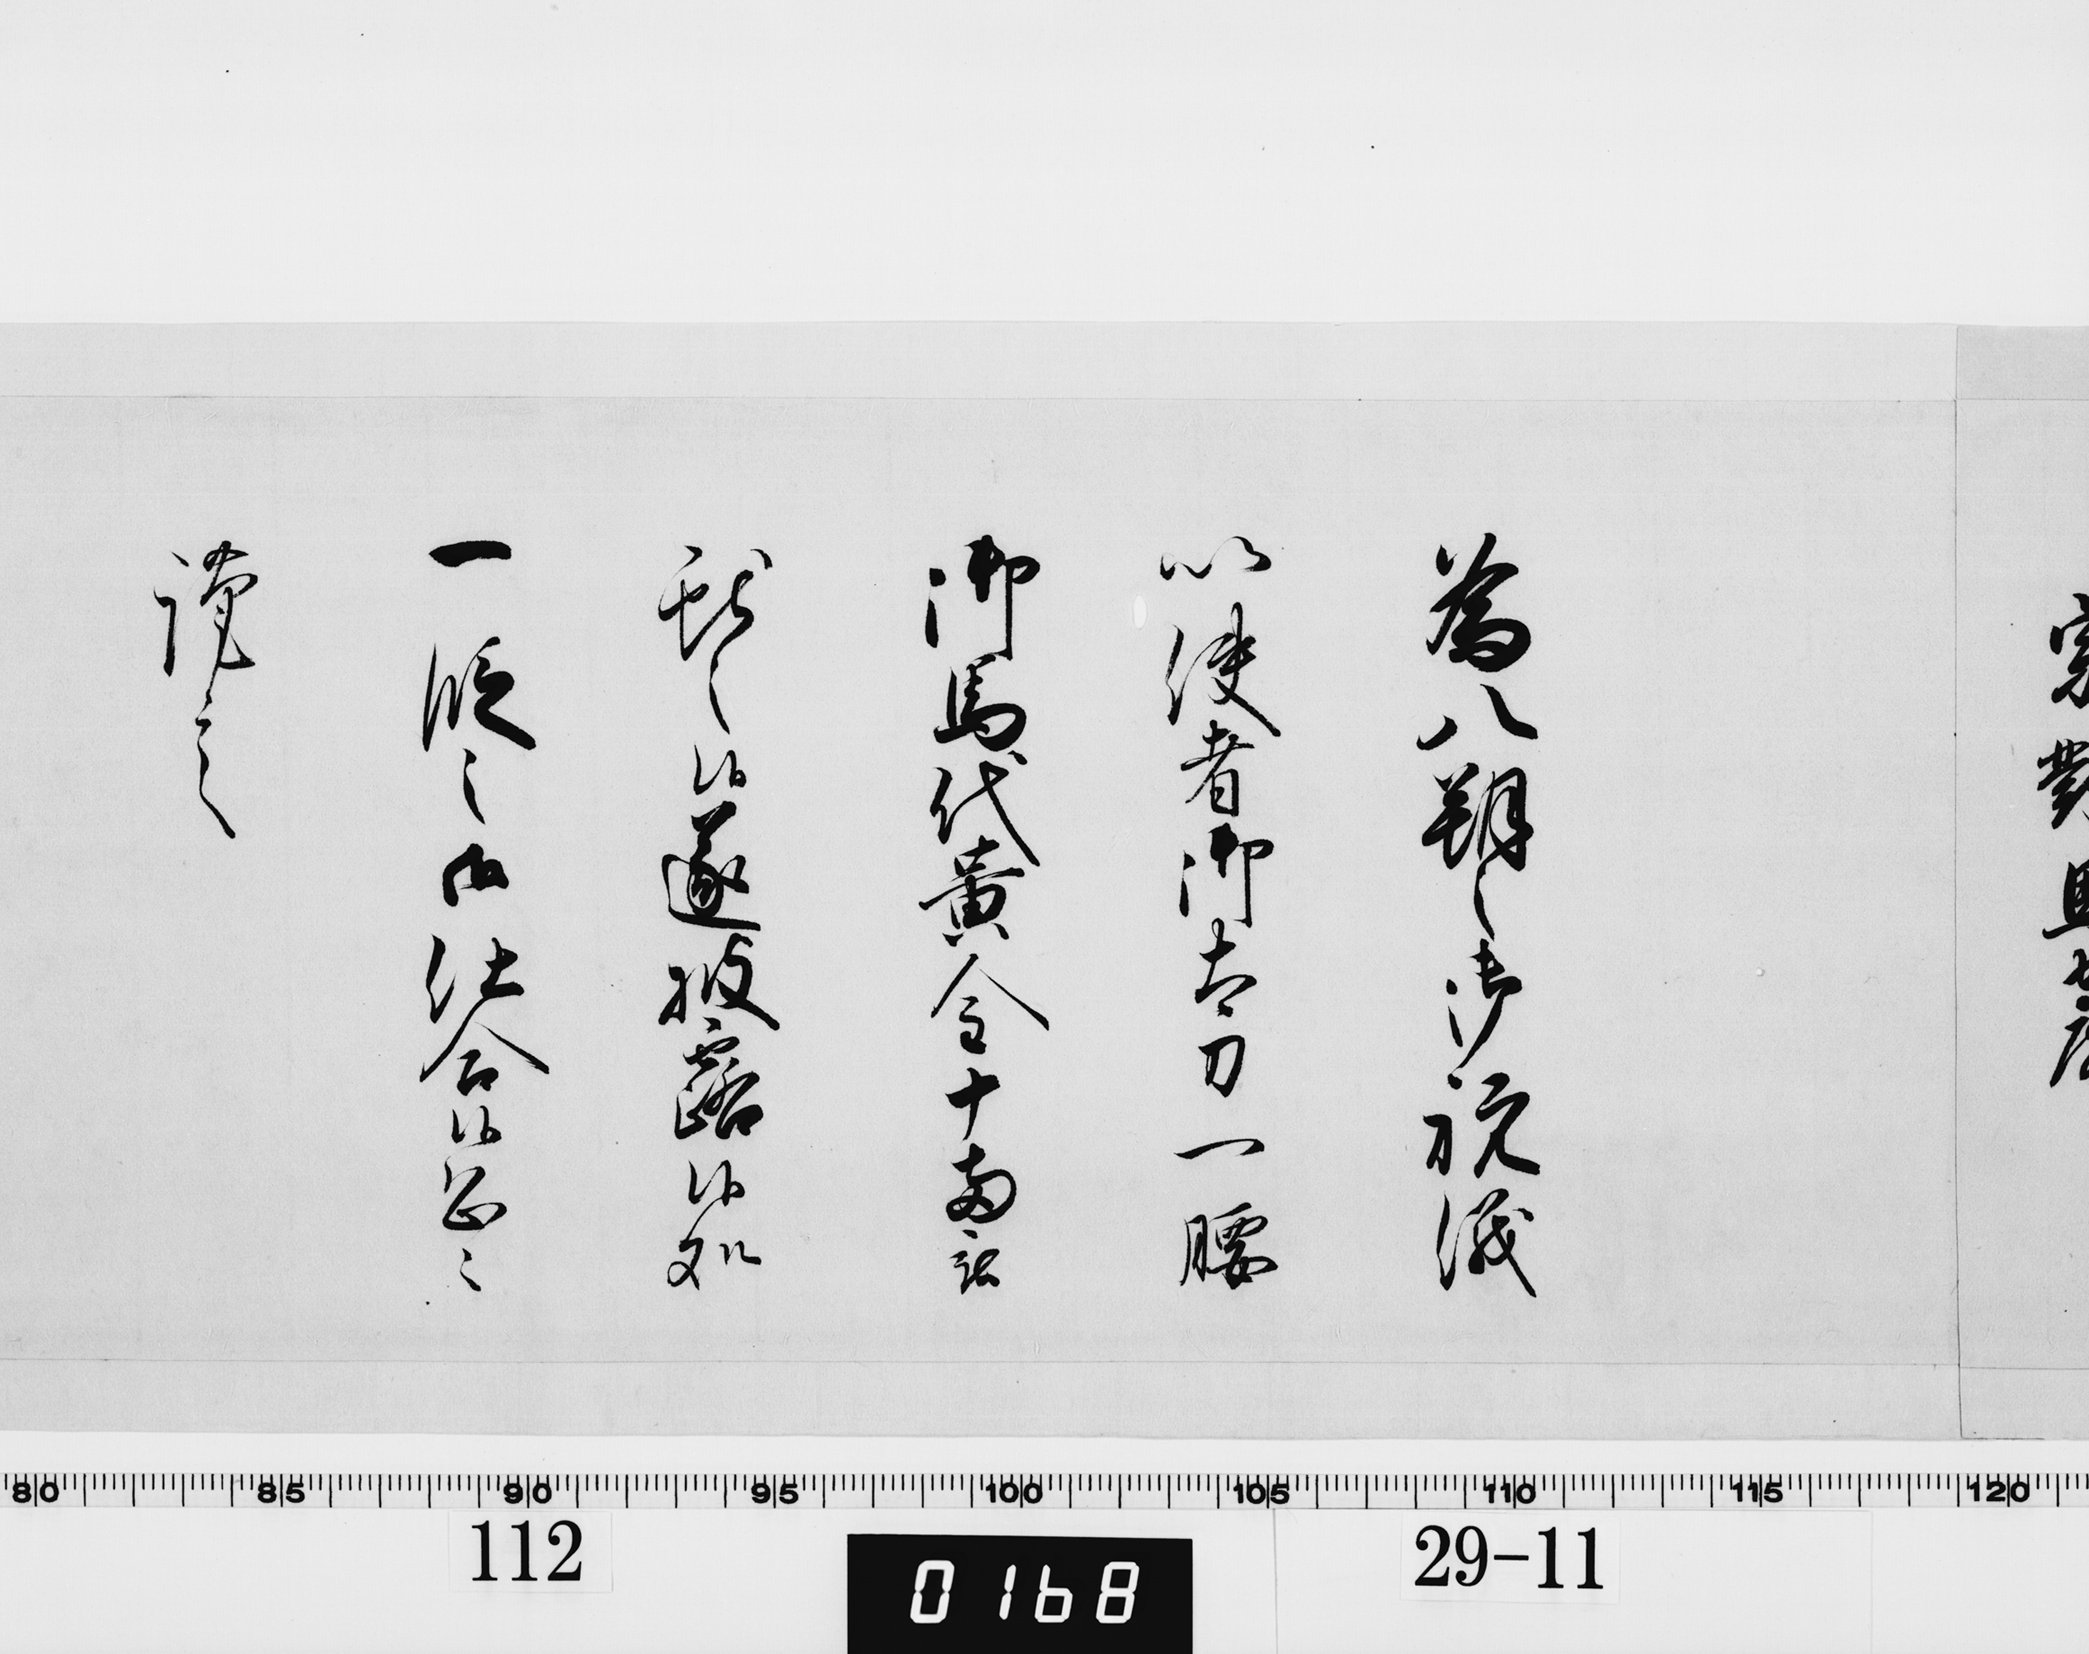 為八朔之御祝儀
以使者御太刀一腰
御馬代黄金十両被
献之候遂披露候処
一段之御仕合候恐々
謹言
80 85 90 95 100 105 110 115 120
112
0168
29-11